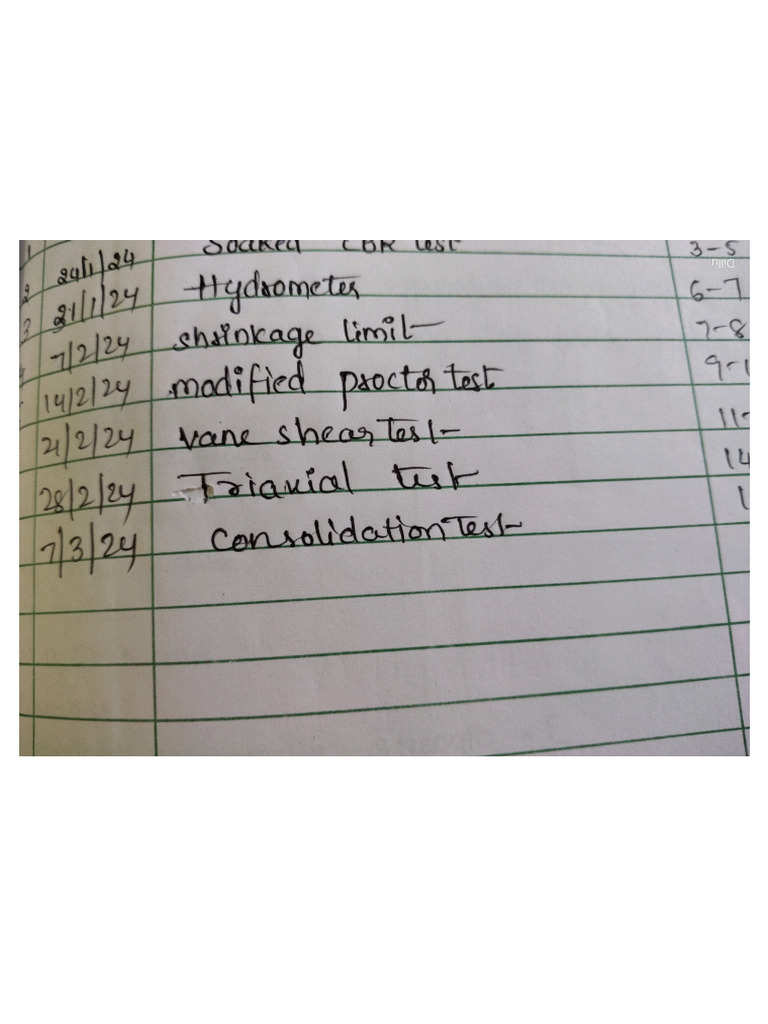 1 24/1/24 Soaked CBR test 3-5
2 31/1/24 Hydrometer 6-7
3 7/2/24 shrinkage limit 7-8
14/2/24 modified proctor test 9-1
21/2/24 vane shear Test 11-
28/2/24 Triaxial test 14
7/3/24 Consolidation Test 1